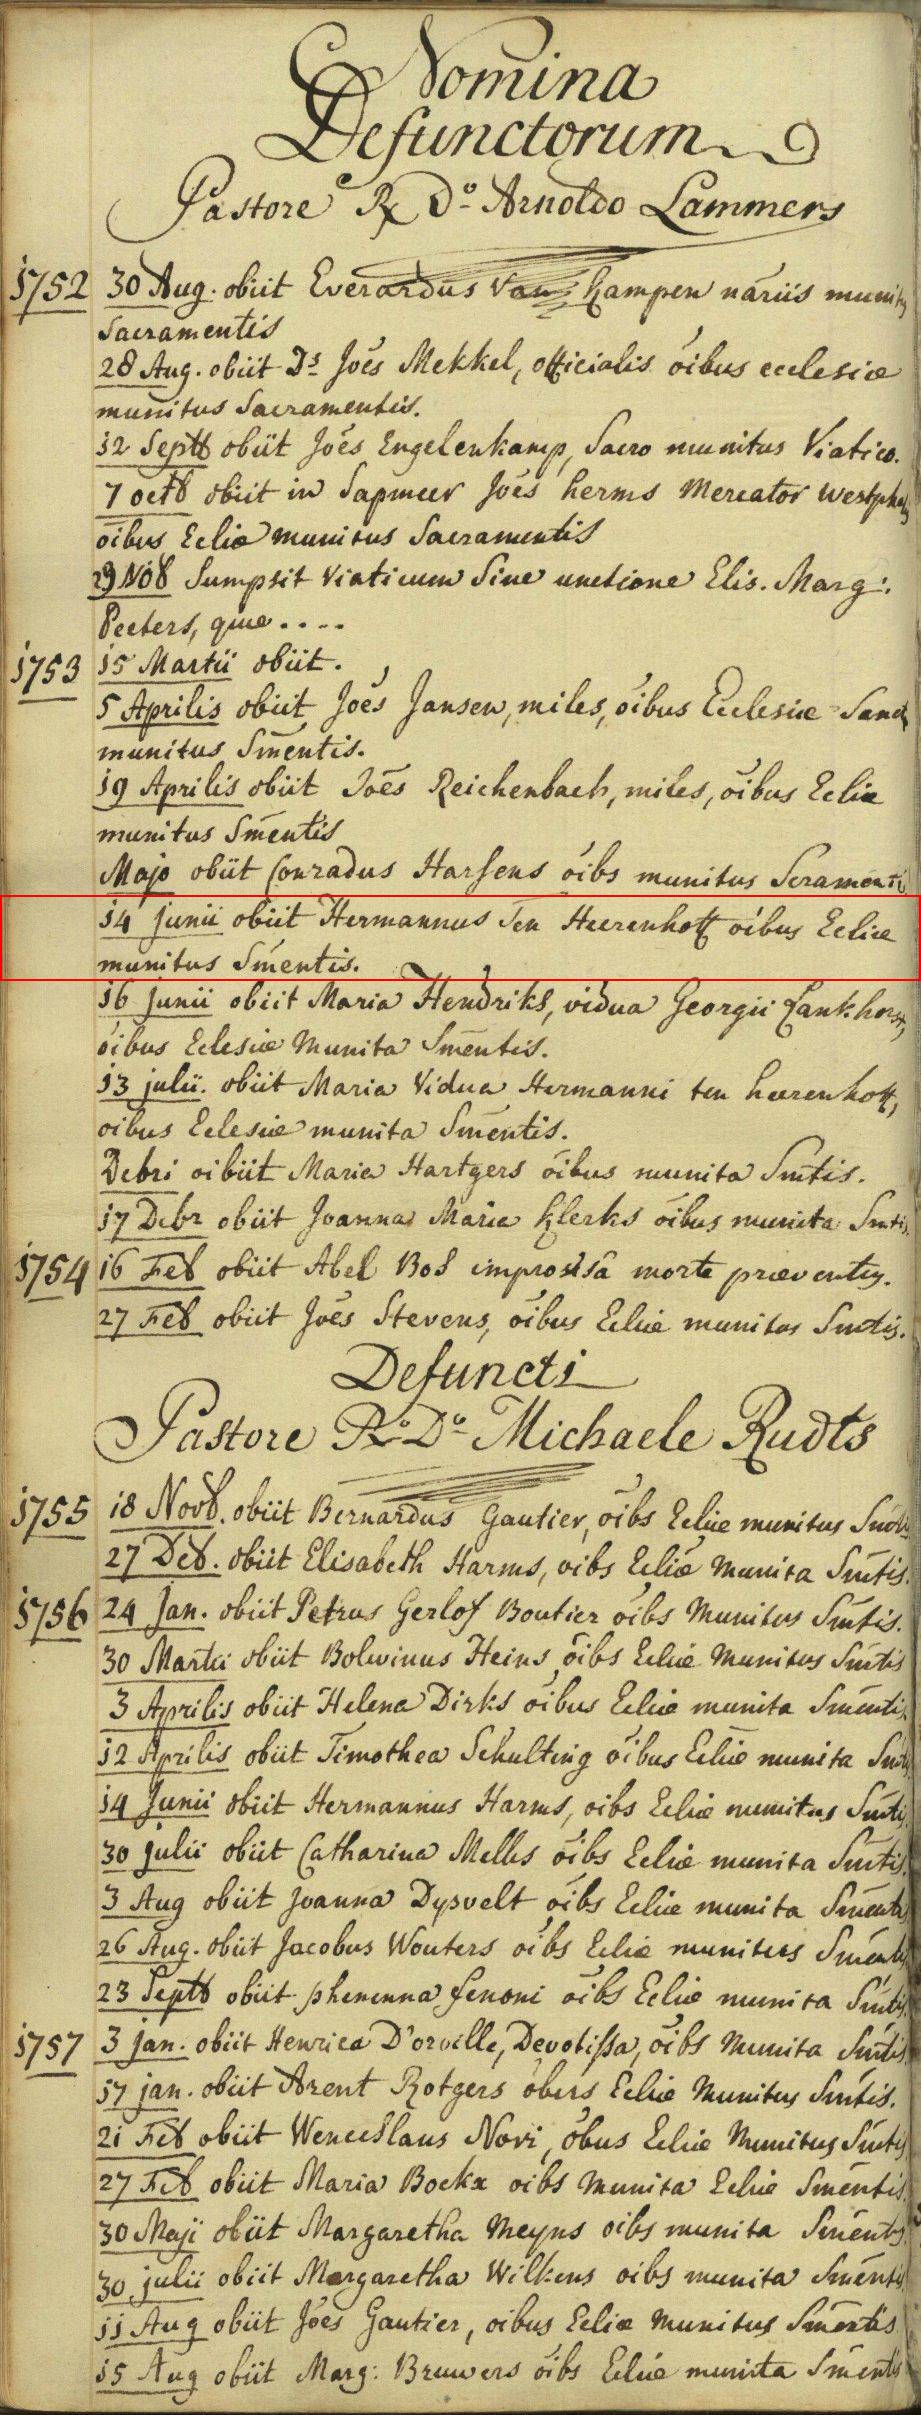 Nomina
Defunctorum
Pastore R. Do. Arnoldo Lammers
1752 30 Aug. obiit Everardus Van Kampen náriis munitus
Sacramentis
28 Aug. obiit Ds Joēs Mekkel, officialis ōibus ecclesiæ
munitus Sacramentis.
12 Septb obiit Joēs Engelenkamp, Sacro munitus Viatico.
7 octb obiit in Sapmeer Joēs herms Mercator
oibus Ecliæ munitus Sacramentis
29 Nob Sumpsit Viaticum Sine unctione Elis. Marg:
Peeters, quæ ....
1753 15 Martii obiit.
5 Aprilis obiit Joēs Jansen, miles, ōibus Ecclesiæ Sanct
munitus Smentis.
19 Aprilis obiit Joēs Reichenbach, miles, ōibus Ecliæ
munitus Smentis
Majo obiit Conradus Harsens ōibs munitus Scramenti
14 Junii obiit Hermannus Ten Heerenhoff oibus Ecliæ
munitus Smentis.
16 Junii obiit Maria Hendriks, vidua Georgii Lankhorst,
ōibus Eclesiæ Munita Smentis.
13 julii. obiit Maria Vidua Hermanni ten heerenhoff,
oibus Eclesiæ munita Smentis.
Debri oibiit Maria Hartgers ōibus munita Smtis.
17 Debr obiit Joanna Maria Klerks ōibus munita Smtis.
1754 16 Feb obiit Abel Bos improvisâ morte præventus.
27 Feb obiit Joēs Stevens, ōibus Ecliæ munitus Smtis.
Defuncti
Pastore Ro. Do. Michaele Rudts
1755 18 Novb. obiit Bernardus Gautier, ōibs Ecliæ munitus Smtis
27 Deb. obiit Elisabeth Harms, oibs Ecliæ Munita Smtis.
1756 24 Jan. obiit Petrus Gerlof Boutier ōibs Munitus Smtis.
30 Martii obiit Bolwinus Heins ōibs Ecliæ Munitus Smtis
3 Aprilis obiit Helena Dirks ōibus Ecliæ munita Smenti.
12 Aprilis obiit Timothea Schulting ōibus Ecliæ munita Smtis
14 Junii obiit Hermannus Harms, oibs Ecliæ munitus Smti.
30 julii obiit Catharina Melles ōibs Ecliæ munita Smtis.
3 Aug obiit Joanna Dysvelt ōibs Ecliæ munita Smentis
26 Aug. obiit Jacobus Wouters oibs Ecliæ munitus Smentis
23 Septb obiit phenenna fenoni ōibs Ecliæ munita Smtis.
1757 3 jan. obiit Henrica D'orville, Devotissa, ōibs Munita Smtis
17 jan. obiit Arent Rotgers obus Ecliæ Munitus Smtis.
21 Feb obiit Wenceslaus Novi, ōbus Ecliæ Munitus Smtis
27 Feb obiit Maria Bockx oibs Munita Ecliæ Smentis.
30 Maji obiit Margaretha Meyns oibs munita Smentis.
30 julii obiit Margaretha Wilkens oibs munita Smentis
11 Aug obiit Joēs Gautier, oibus Ecliæ Munitus Smentis
15 Aug obiit Marg: Bruwers ōibs Ecliæ munita Smentis